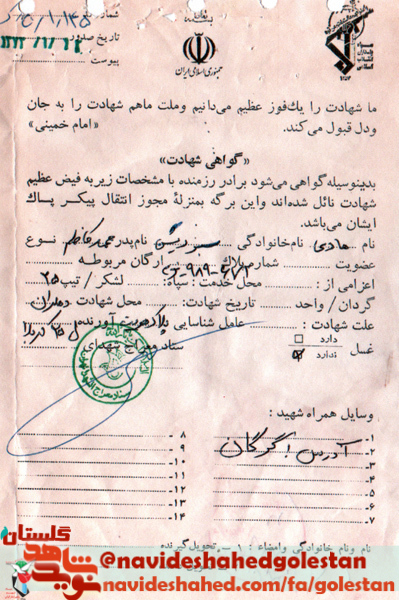 شماره
تاریخ صدور ۱۳۷۳/۱/۱۶
پیوست
جمهوری اسلامی ایران
ما شهادت را یك فوز عظیم می‌دانیم وملت ماهم شهادت را به جان
ودل قبول می‌کند. «امام خمینی»
«گواهی شهادت»
بدینوسیله گواهی می‌شود برادر رزمنده با مشخصات زیر به فیض عظیم
شهادت نائل شده‌اند واین برگه بمنزلهٔ مجوز انتقال پیکر پـاك
ایشان می‌باشد.
نام هادی نام‌خانوادگی نام‌پدر محمد کاظم نـوع
عضویت شماره پلاك ارگان مربوطـه
اعزامی از : محل خدمت : سپاه: لشکر / تیپ ۲۵
گردان / واحد تاریخ شهادت: محل شهادت دهلران
علت شهادت : عامل شناسایی پلاک هویت آورنده ل ۲۵ کربلا
غسل دارد
ندارد
ستاد معراج شهدای
وسایل همراه شهید :
۱-
۲- آدرس : گرگان
۳-
۴-
۵-
۶-
۷-
۸ -
۹ -
۱۰ -
۱۱ -
۱۲ -
۱۳ -
۱۴ -
نام ونام خانوادگی وامضاء : ۱ - تحویل‌گیرنده
گلستان
نوید شاهد
@navideshahedgolestan
navideshahed.com/fa/golestan